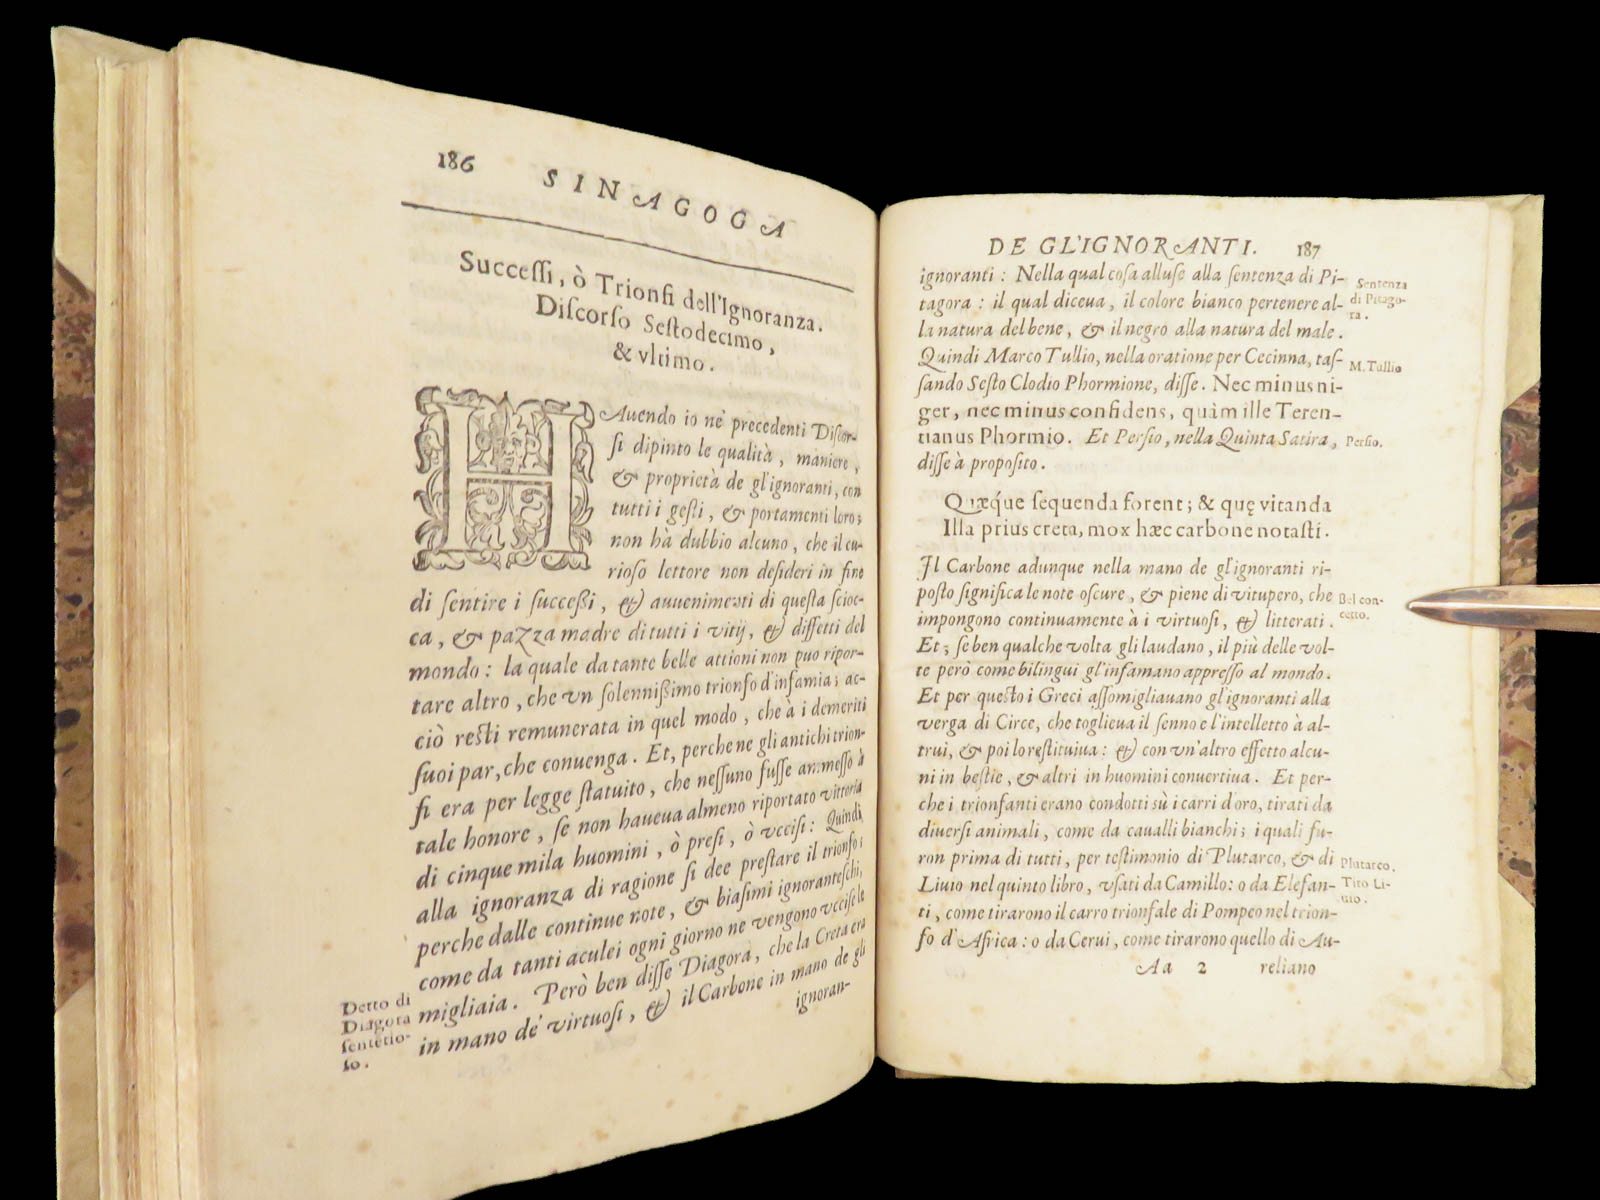 186
SINAGOGA
Successi, ò Trionfi dell'Ignoranza.
Discorso Sestodecimo,
& vltimo.
HAuendo io nè precedenti Discor-
si dipinto le qualità, maniere,
& proprietà de gl'ignoranti, con
tutti i gesti, & portamenti loro;
non hà dubbio alcuno, che il cu-
rioso lettore non desideri in fine
di sentire i successi, & auuenimenti di questa scioc-
ca, & pazza madre di tutti i vitij, & diffetti del
mondo: la quale da tante belle attioni non puo ripor-
tare altro, che vn solennissimo trionfo d'infamia; ac-
ciò resti remunerata in quel modo, che à i demeriti
suoi par, che conuenga. Et, perche ne gli antichi trion-
fi era per legge statuito, che nessuno fusse ammesso à
tale honore, se non haueua almeno riportato vittoria
di cinque mila huomini, ò presi, ò vccisi: Quindi
alla ignoranza di ragione si dee prestare il trionfo;
perche dalle continue note, & biasimi ignoranteschi,
come da tanti aculei ogni giorno ne vengono vccise le
migliaia. Però ben disse Diagora, che la Creta era
in mano de' virtuosi, & il Carbone in mano de gli
ignoran-
Detto di
Diagora
sentetio-
so.
DE GL'IGNORANTI. 187
ignoranti: Nella qual cosa alluse alla sentenza di Pi-
tagora: il qual diceua, il colore bianco pertenere al-
la natura del bene, & il negro alla natura del male.
Quindi Marco Tullio, nella oratione per Cecinna, tas-
sando Sesto Clodio Phormione, disse. Nec minus ni-
ger, nec minus confidens, quàm ille Teren-
tianus Phormio. Et Persio, nella Quinta Satira,
disse à proposito.
Quæq́ue sequenda forent; & quę vitanda
Illa prius creta, mox hæc carbone notasti.
Il Carbone adunque nella mano de gl'ignoranti ri-
posto significa le note oscure, & piene di vitupero, che
impongono continuamente à i virtuosi, & litterati.
Et; se ben qualche volta gli laudano, il più delle vol-
te però come bilingui gl'infamano appresso al mondo.
Et per questo i Greci assomigliauano gl'ignoranti alla
verga di Circe, che toglieua il senno e l'intelletto à al-
trui, & poi lo restituiua: & con vn'altro effetto alcu-
ni in bestie, & altri in huomini conuertiua. Et per-
che i trionfanti erano condotti sù i carri d'oro, tirati da
diuersi animali, come da caualli bianchi; i quali fu-
ron prima di tutti, per testimonio di Plutarco, & di
Liuio nel quinto libro, vsati da Camillo: o da Elefan-
ti, come tirarono il carro trionfale di Pompeo nel trion-
fo d'Africa: o da Cerui, come tirarono quello di Au-
Aa 2 reliano
Sentenza
di Pitago-
ra.
M. Tullio
Persio.
Bel con-
cetto.
Plutarco.
Tito Li-
uio.